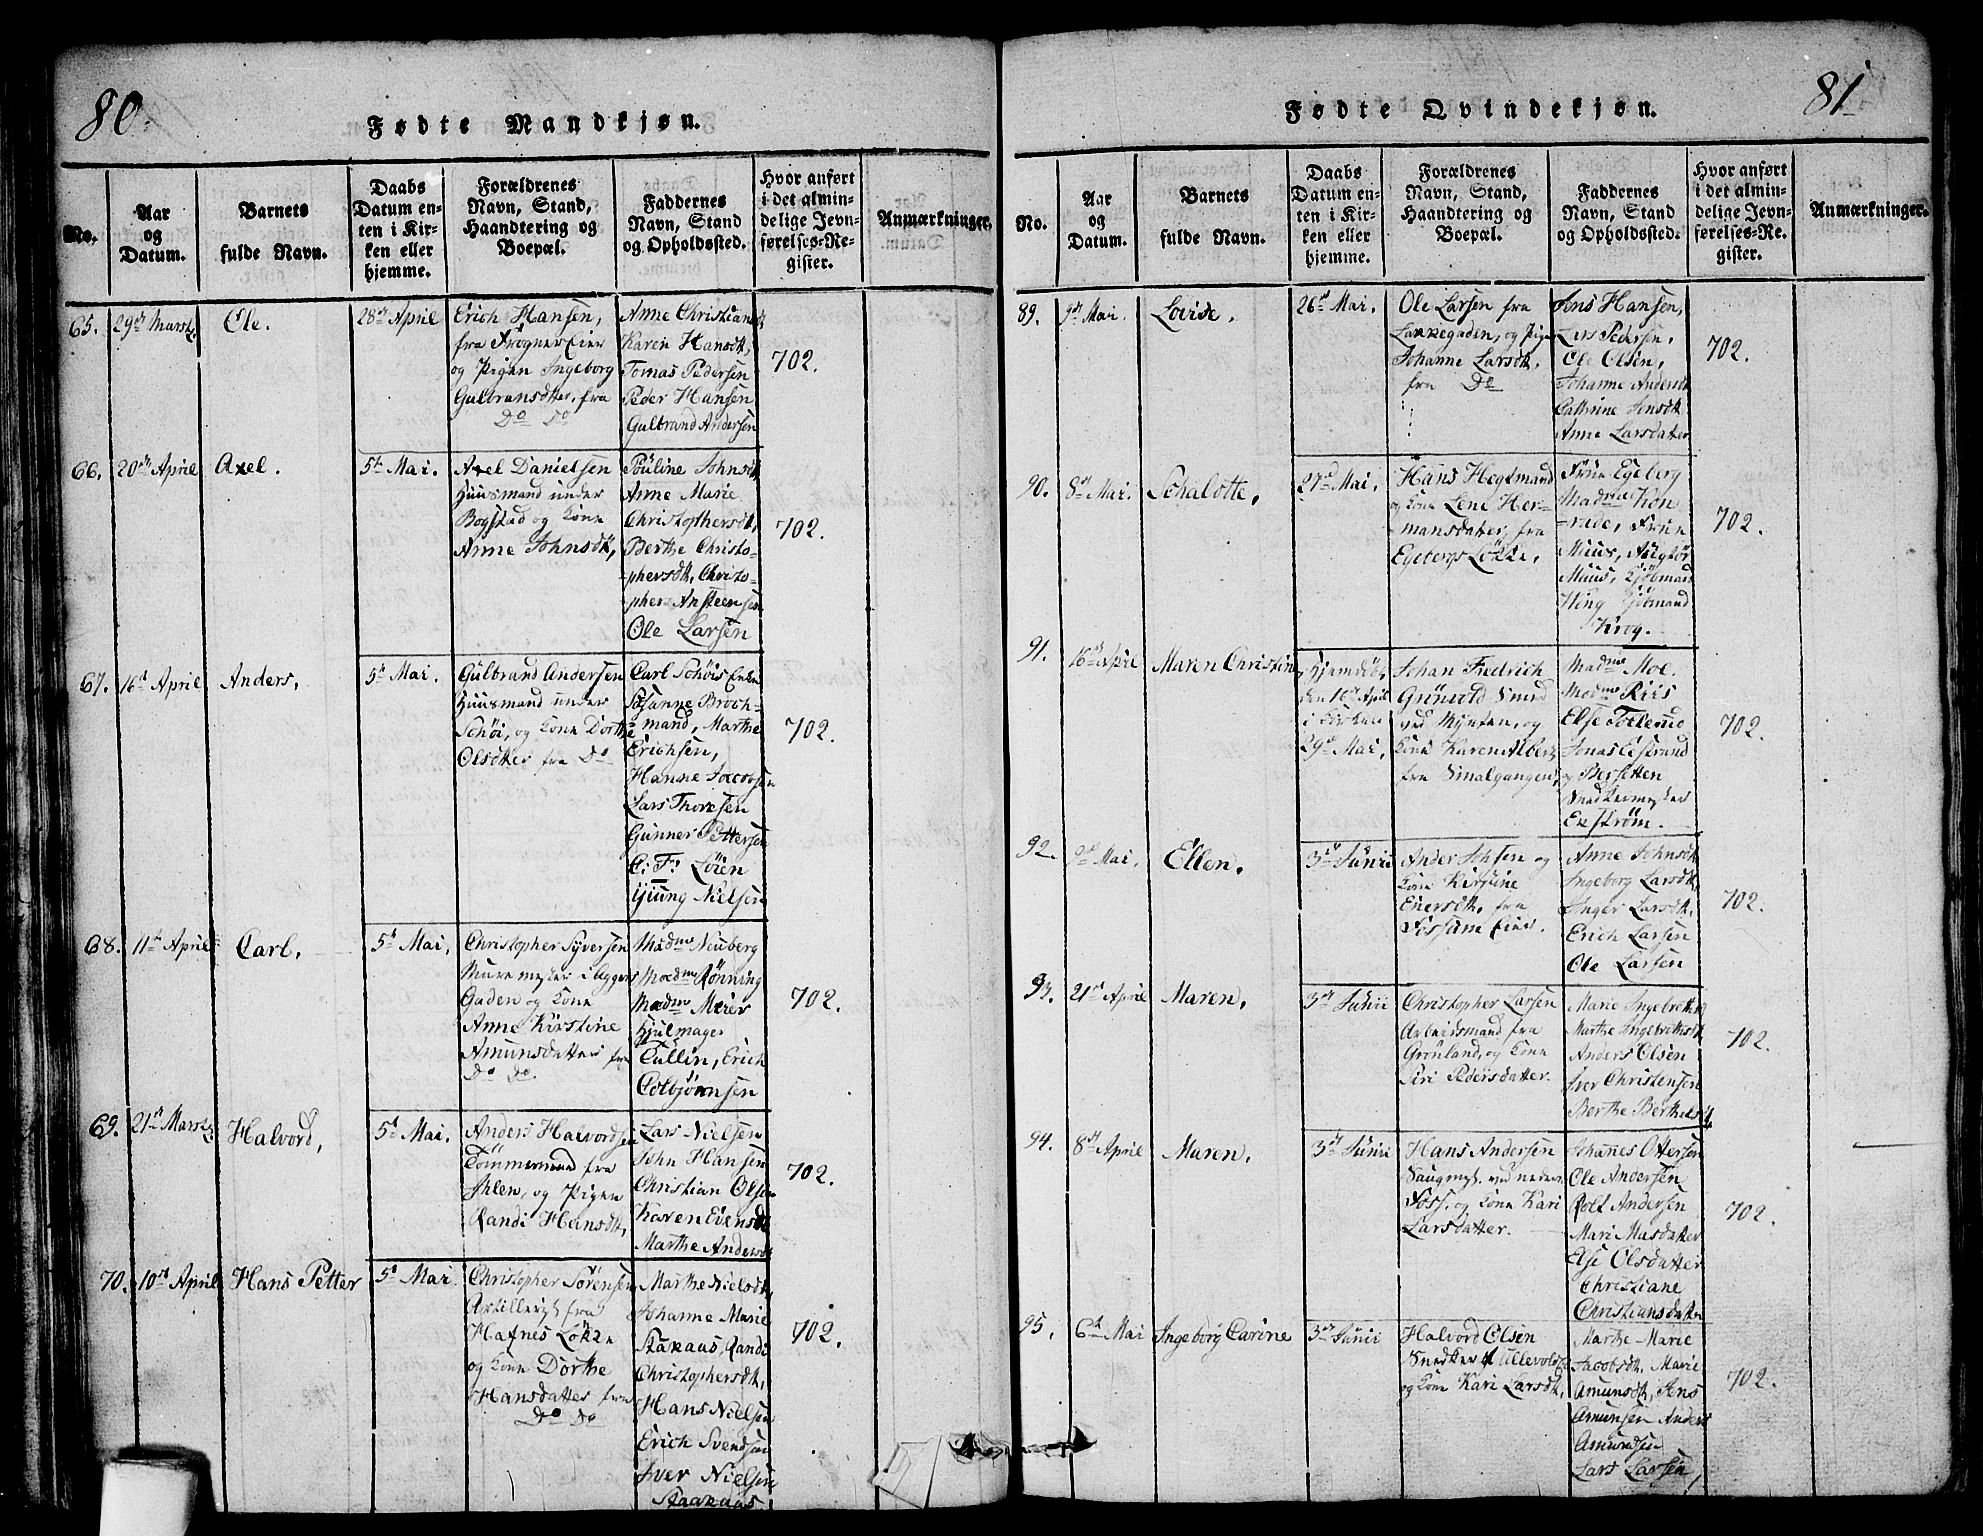 80.
Fødte Mandkjøn.
No.
Aar
og
Datum.
Barnets
fulde Navn.
Daabs
Datum en-
ten i Kir-
ken eller
hjemme.
Forældrenes
Navn, Stand,
Haandtering og
Boepæl.
Faddernes
Navn, Stand
og Opholdssted.
Hvor anført
i det almin-
delige Jevn-
førelses-Re-
gister.
Anmærkninger.
65.
29de Martz.
Ole.
28de April
Erich Hansen,
fra Frogner Eier
og Pigen Ingeborg
Gulbransdatter, fra
Do Do
Anne Christiansdt
Karen Hansdt,
Tomas Pedersen
Peder Hansen
Gulbrand Andersen
702.
66.
20de April
Axel.
5te Mai.
Axel Danielsen
Huusmand under
Bogstad og Kone
Anne Johnsdt,
Pouline Johnsdt,
Anne Marie
Christophersdt,
Berthe Christo-
phersdt, Christo-
phers Ansteensen
Ole Larsen
702.
67.
16de April
Anders,
5te Mai.
Gulbrand Andersen
Huusmand under
Schöi, og Kone Dorthe
Olsdtter fra Do
Carl Schöis Enke
Susanne Broch-
mand, Marthe
Erichsen,
Hanne Jacobsen
Lars Thoresen
Gunner Pettersen
C: F: Löien
Gjüung Nielsen
702.
68.
11te April
Carl,
5te Mai,
Christopher Syversen
Muremester i
Gaden og Kone
Anne Kirstine
Amunsdatter fra
Do Do.
Madme Neuberg
Madme Rönning
Madme Meier
Hjulmager
Tullin, Erich
Colbjörnsen
702.
69.
21de Martz
Halvord,
5te Mai.
Anders Halvordsen
Tömmermand fra
Ihlen, og Pigen
Randi Hansdt,
Lars Nielsen
John Hansen
Christian Olsen
Karen Eiensdt
Marthe Andersdt
702.
70.
10de April
Hans Petter
5te Mai
Christopher Sörensen
Artillerist fra
Hafnes Lökke
og Kone Dorthe
Hansdatter fra
Do Do
Marthe Nielsdt,
Johanne Marie
Stakaas, Randi
Christophersdt,
Hans Nielsen
Erich Svendsen
Iver Nielsen
Staakaas
702.
81
Fødte Qvindekjøn.
No.
Aar
og
Datum.
Barnets
fulde Navn.
Daabs
Datum en-
ten i Kir-
ken eller
hjemme.
Forældrenes
Navn, Stand,
Haandtering og
Boepæl.
Faddernes
Navn, Stand
og Opholdssted.
Hvor anført
i det almin-
delige Jevn-
førelses-Re-
gister.
Anmærkninger.
89.
9de Mai.
Lovise,
26de Mai,
Ole Larsen fra
Lakkegaden, og Pigen
Johanne Larsdt,
fra Do
Jens Hansen,
Lars Pedersen,
Ole Olsen,
Johanne Andersdt
Cathrine Jensdt
Anne Larsdatter
702.
90.
8de Mai.
Schalotte,
27de Mai,
Hans Hegtmand
og Kone Lene Her-
mansdatter, fra
Egebergs Lökke,
Fruen Egeberg
Madme Kon
rade, Fruen
Muus,
Muus, Kjöbmand
Wing Kjöbmand
Krog.
702.
91.
16de April
Maren Christine
Hjemdöbt,
den 16de April
i Kirken
29de Mai,
Johan Fredrich
Grünvold Smed
ved Mynten, og
Kone Karen
fra Smalgangen,
Madme Moe.
Madme Riis
Else Toelerud
Jonas Eistrand
Bersetten
Snedkermester
Ekström.
702.
92.
9de Mai,
Ellen,
3de Juni
Ander Johsen og
Kone Kirstine
Enersdt, fra
Fossum Eier.
Anne Johnsdt
Ingeborg Larsdt,
Inger Larsdt.
Erich Larsen
Ole Larsen
702.
93.
21de April
Maren,
3de Juni
Christopher Larsen
Arbeidsmand fra
Grönland, og Kone
Siri Pedersdatter.
Marie Ingebretsdt
Marthe Ingebretsdt
Anders Olsen
Iver Christensen
Berthe Berthelsdt
702.
94.
8de April
Maren,
3de Juni
Hans Andersen
Saugmst. ved nedere
Foss, og Kone Kari
Larsdatter.
Johanes Ottersen
Ole Andersen
Rolf Andersen
Mari Masdatter
Else Olsdatter
Christiane
Christiansdatter
702.
95.
6te Mai
Ingeborg Carine
3de Juni
Halvord Olsen
Snedker Ullevold
og Kone Kari Larsdt,
Marthe Marie
Jacobsdt, Marie
Amunsdt, Jens
Amunsen Anders
Amundsen
Lars Larsen,
702.